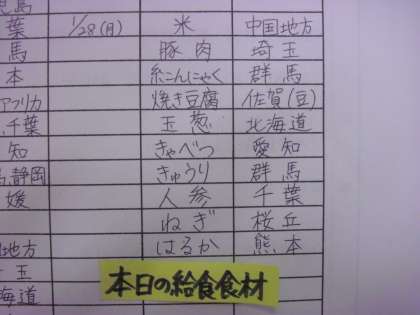 児島
葉 1/28(月) 米 中国地方
馬 豚肉 埼玉
本 糸こんにゃく 群馬
アフリカ 焼き豆腐 佐賀(豆)
、千葉 玉葱 北海道
知 きゃべつ 愛知
静岡 きゅうり 群馬
媛 人参 千葉
ねぎ 桜丘
地方 はるか 熊本
玉
海道
本日の給食食材